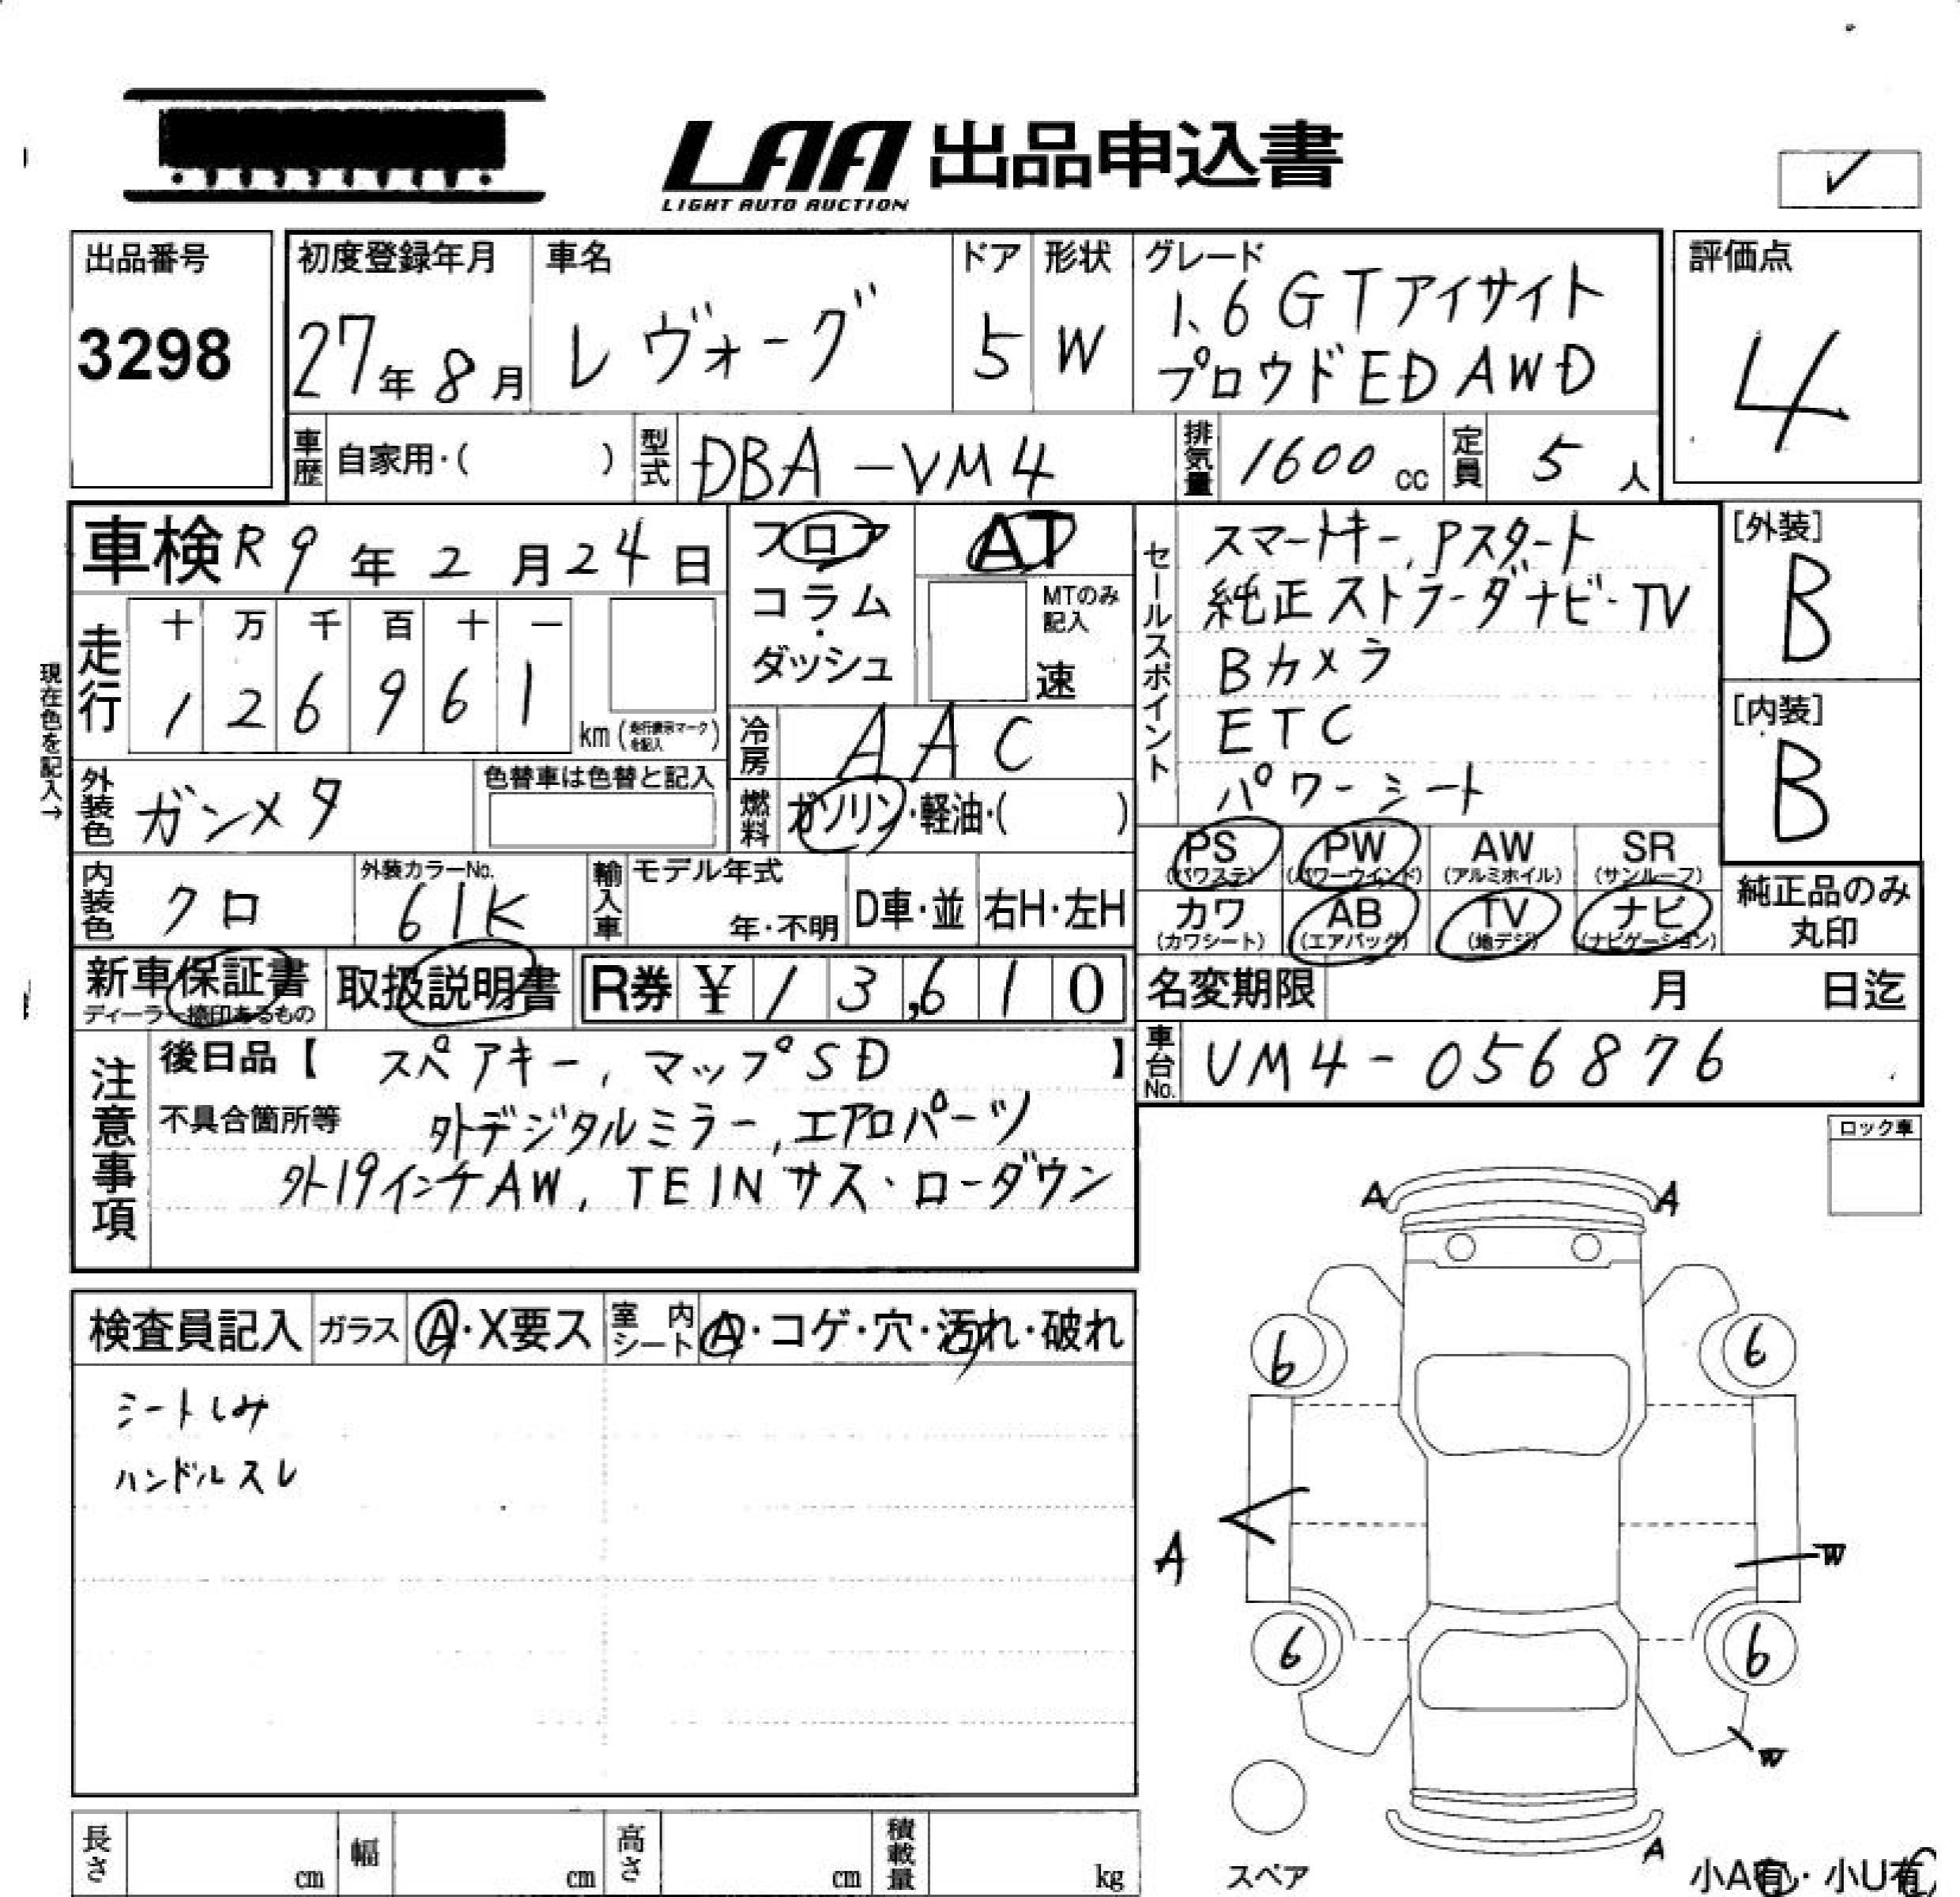 LAA 出品申込書
LIGHT AUTO AUCTION
✓
出品番号
3298
初度登録年月
27年8月
車名
レヴォーグ
ドア
5
形状
W
グレード
1.6GTアイサイト
プロウドED AWD
評価点
4
車歴 自家用・( )
型式 DBA-VM4
排気量 1600 cc
定員 5人
車検 R9年2月24日
現在色を記入→
走行 十 万 千 百 十 一
1 2 6 9 6 1
km (走行表示マークを記入)
外装色 ガンメタ
色替車は色替と記入
内装色 クロ
外装カラーNo.
61K
フロア
コラム
・
ダッシュ
AT
MTのみ記入
速
冷房 AAC
燃料 ガソリン・軽油・( )
輸入車 モデル年式
年・不明
D車・並 右H・左H
セールスポイント
スマートキー, Pスタート
純正ストラーダナビ・TV
Bカメラ
ETC
パワーシート
[外装]
B
[内装]
B
PS (パワステ)
PW (パワーウインド)
AW (アルミホイル)
SR (サンルーフ)
カワ (カワシート)
AB (エアバッグ)
TV (地デジ)
ナビ (ナビゲーション)
純正品のみ
丸印
新車保証書
ディーラー捺印あるもの
取扱説明書
R券 ¥13,610
名変期限 月 日迄
車台No. VM4-056876
注意事項
後日品【 スペアキー, マップSD 】
不具合箇所等 外デジタルミラー, エアロパーツ
外19インチAW, TEINサス・ローダウン
ロック車
検査員記入
ガラス A・X要ス
室内シート A・コゲ・穴・汚れ・破れ
シートしみ
ハンドルスレ
A A
6 6
A W
6 6
W
A
スペア
小A有・小U有
長さ cm
幅 cm
高さ cm
積載量 kg